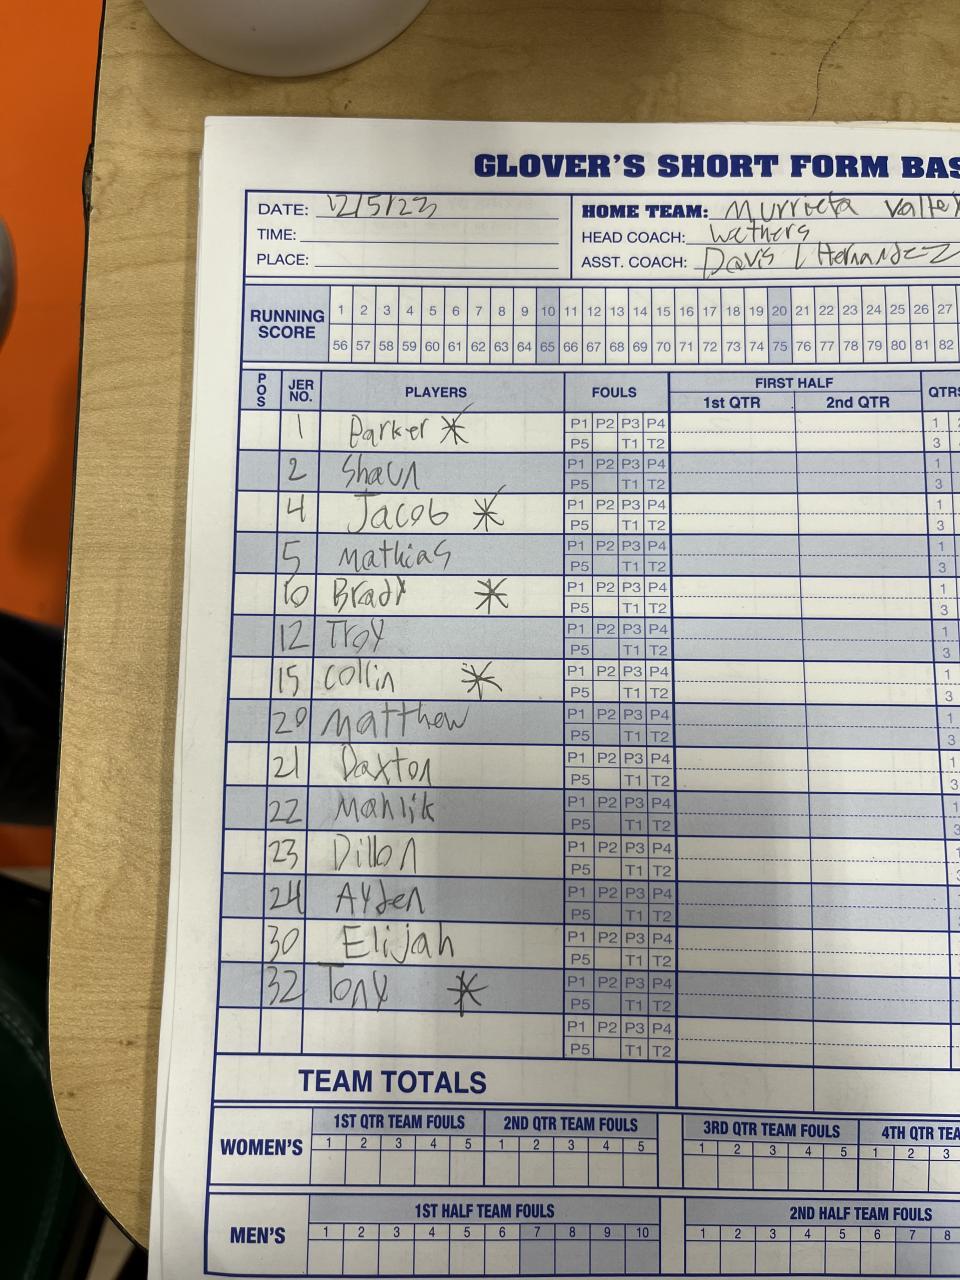 GLOVER'S SHORT FORM BAS
DATE: 12/5/23
TIME:
PLACE:
HOME TEAM: Murrieta Valley
HEAD COACH: Wethers
ASST. COACH: Davis / Hernandez
RUNNING SCORE
1 2 3 4 5 6 7 8 9 10 11 12 13 14 15 16 17 18 19 20 21 22 23 24 25 26 27
56 57 58 59 60 61 62 63 64 65 66 67 68 69 70 71 72 73 74 75 76 77 78 79 80 81 82
POS JER NO. PLAYERS FOULS FIRST HALF QTRS
1st QTR 2nd QTR
1 Parker * P1 P2 P3 P4 1 2
P5 T1 T2 3
2 Shaun P1 P2 P3 P4 1
P5 T1 T2 3
4 Jacob * P1 P2 P3 P4 1
P5 T1 T2 3
5 Mathias P1 P2 P3 P4 1
P5 T1 T2 3
10 Brady * P1 P2 P3 P4 1
P5 T1 T2 3
12 Troy P1 P2 P3 P4 1
P5 T1 T2 3
15 Collin * P1 P2 P3 P4 1
P5 T1 T2 3
20 Matthew P1 P2 P3 P4 1
P5 T1 T2 3
21 Daxton P1 P2 P3 P4 1
P5 T1 T2 3
22 Mahlik P1 P2 P3 P4 1
P5 T1 T2 3
23 Dillon P1 P2 P3 P4 1
P5 T1 T2 3
24 Ayden P1 P2 P3 P4 1
P5 T1 T2
30 Elijah P1 P2 P3 P4 1
P5 T1 T2
32 Tony * P1 P2 P3 P4
P5 T1 T2
P1 P2 P3 P4
P5 T1 T2
TEAM TOTALS
WOMEN'S
1ST QTR TEAM FOULS 2ND QTR TEAM FOULS 3RD QTR TEAM FOULS 4TH QTR TEA
1 2 3 4 5 1 2 3 4 5 1 2 3 4 5 1 2 3
MEN'S
1ST HALF TEAM FOULS 2ND HALF TEAM FOULS
1 2 3 4 5 6 7 8 9 10 1 2 3 4 5 6 7 8